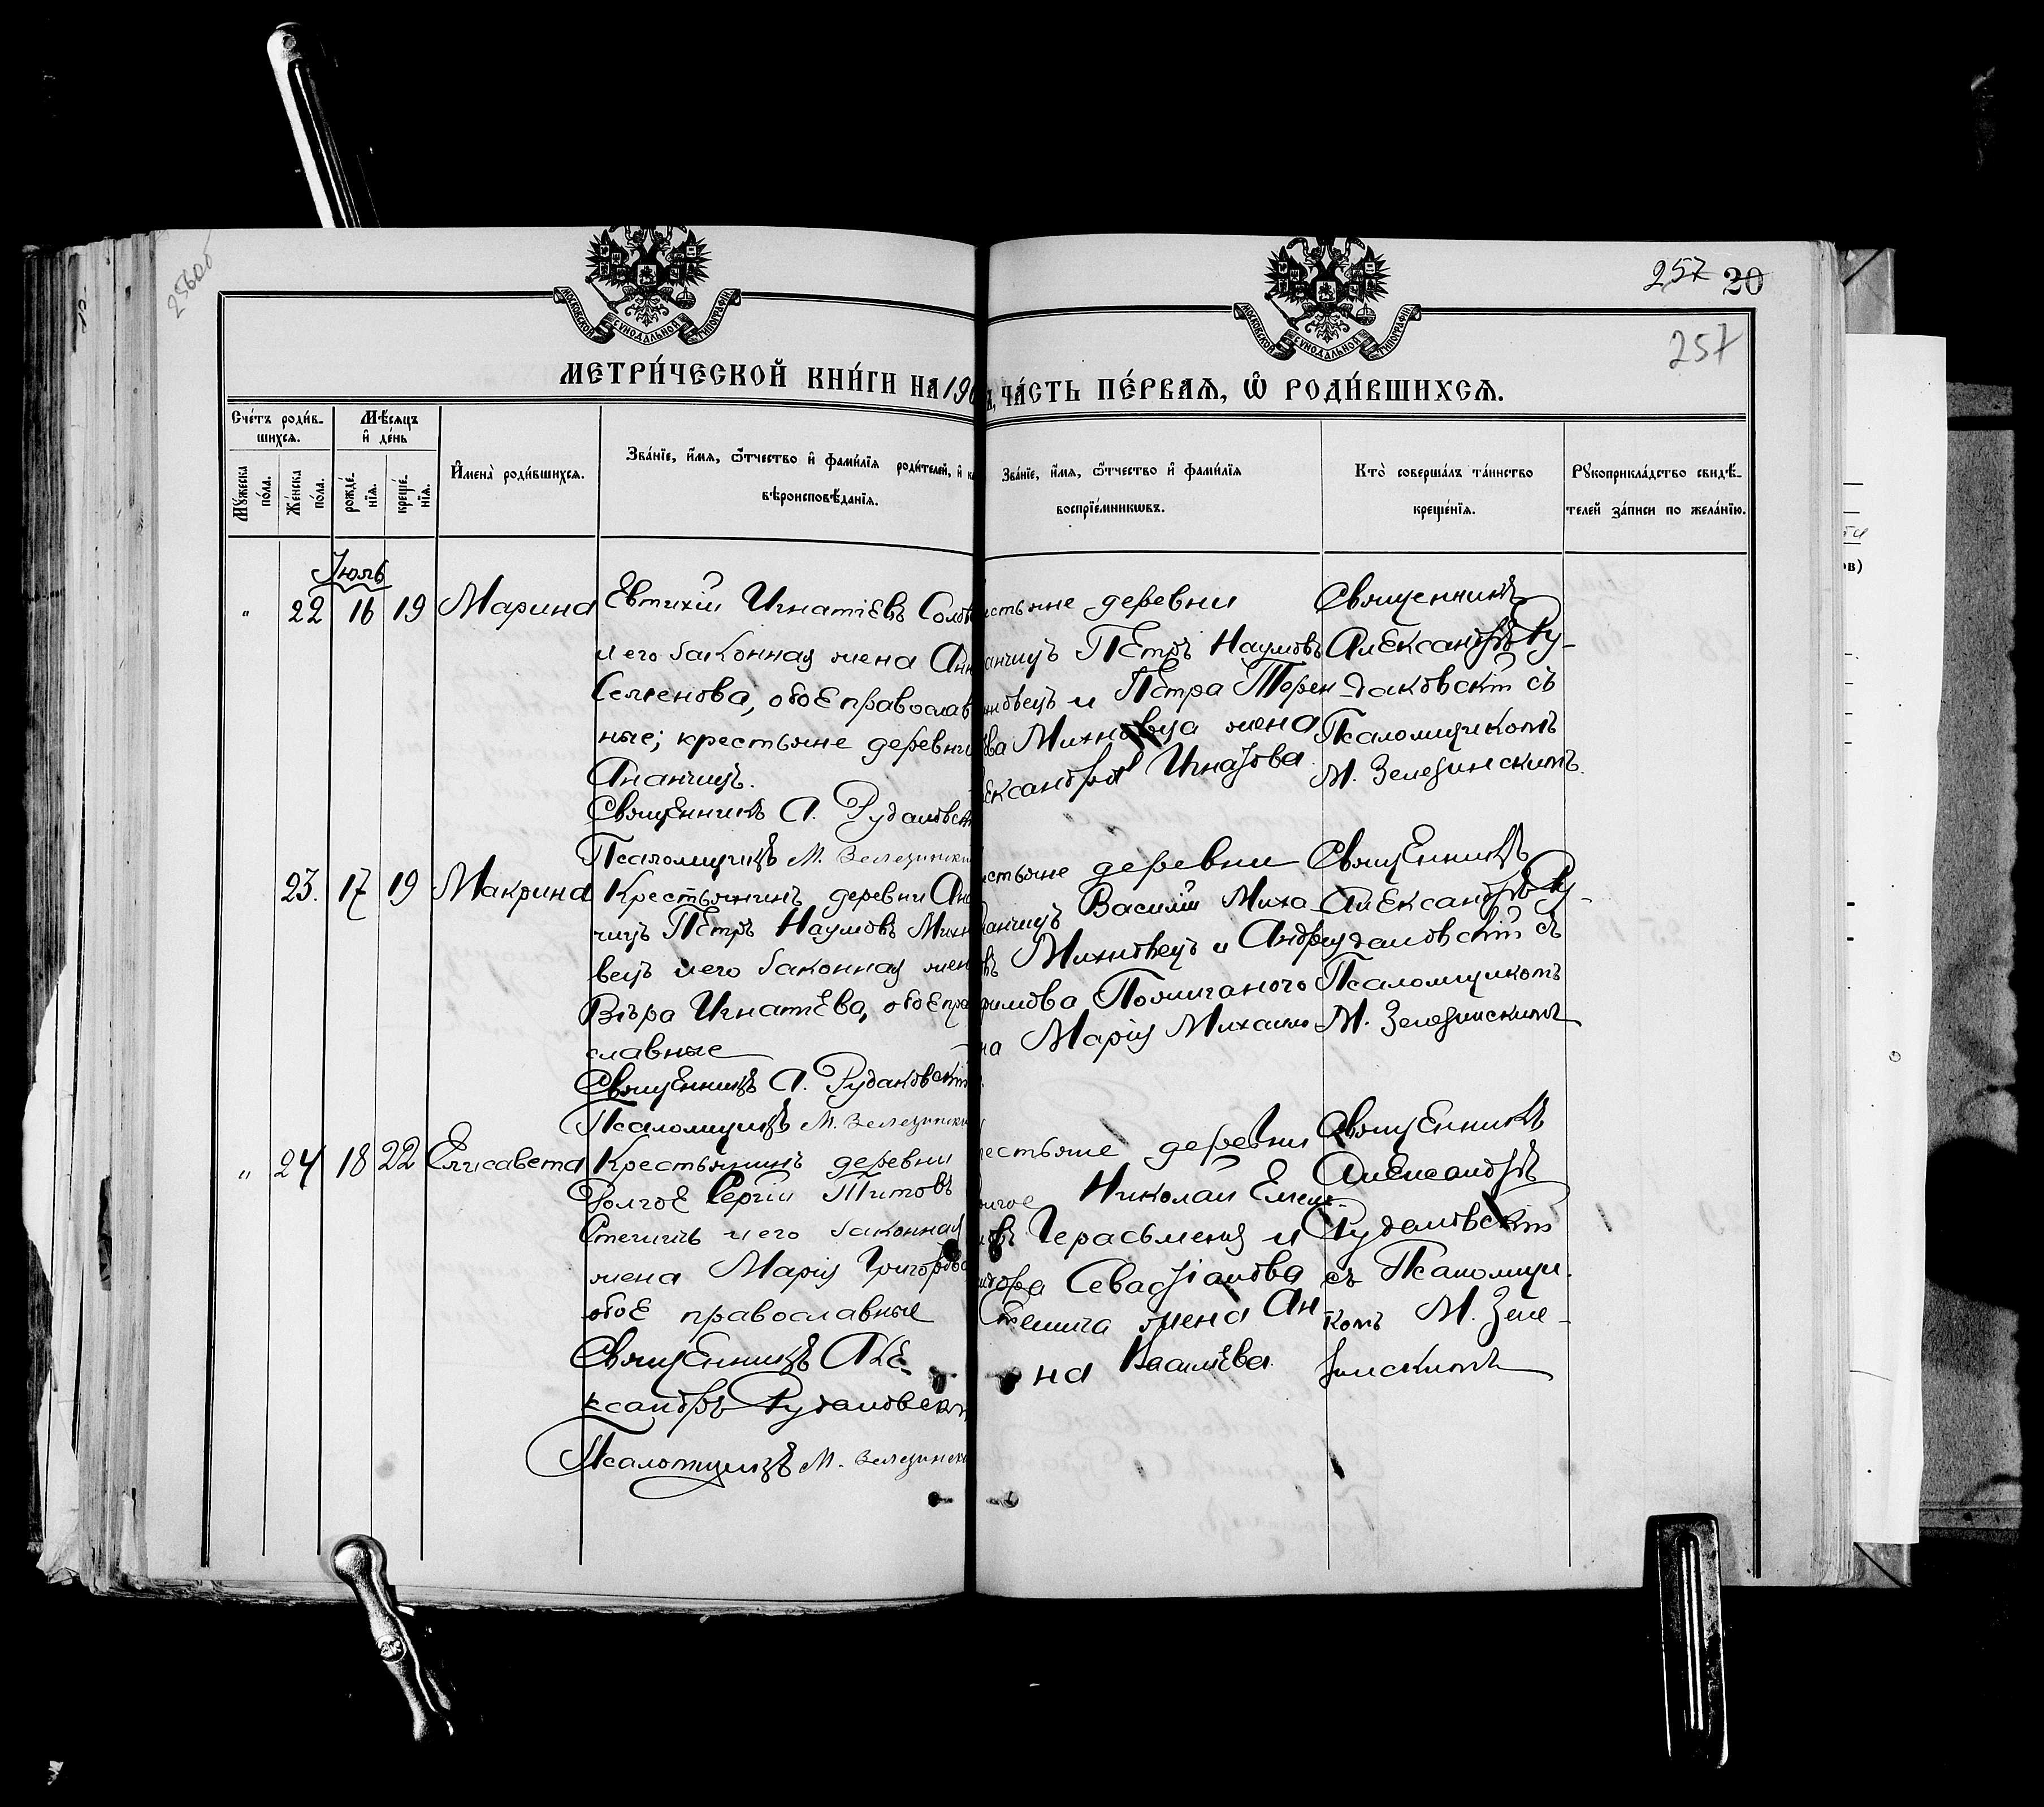 256об
257 20
257
МОСКОВСКОЙ СѴНОДАЛЬНОЙ ТИПОГРАФІИ
МОСКОВСКОЙ СѴНОДАЛЬНОЙ ТИПОГРАФІИ
МЕТРИ́ЧЕСКОЙ КНИ́ГИ НА 190
ЧА́СТЬ ПЕ́РВАѦ, Ѿ РОДИ́ВШИХСѦ.
Сче́тъ роди́в-
шихсѧ.
Мѣсѧцъ
и де́нь
Мꙋжеска
по́ла.
Же́нска
по́ла.
рожде́-
нїѧ.
креще́-
нїѧ.
Имена̀ роди́вшихсѧ.
Зва́нїе, и́мѧ, ѻ҆́тчество и҆ фами́лїѧ роди́телей, и҆
вѣроисповѣ́данїѧ.
Зва́нїе, и́мѧ, ѻ҆́тчество и҆ фами́лїѧ
воспрїе́мникѡвъ.
Кто̀ соверша́лъ та́инство
креще́нїѧ.
Рꙋкоприкла́дство свидѣ́-
телей за́писи по жела́нїю.
Іюль
" 22 16 19 Марина
Евтихій Игнатіевъ
и его законная жена
Семенова, обое православ
ные; крестьяне деревни
Ананчицъ.
Священникъ А. Рудаковск
Псаломщикъ М. Зелезински
стьяне деревни
анчицъ Петръ Наумовъ
новецъ и Петра
Михновца жена
ександра
Священникъ
Александръ Ру-
даковскій съ
Псаломщикомъ
М. Зелезинскимъ.
23. 17 19 Макрина
Крестьянинъ деревни Ана
чицъ Петръ Наумовъ Михн
вецъ и его законная жен
Вѣра Игнатѣева, обое пра
славные
Священникъ А. Рудаковскій
Псаломщикъ М. Зелезински
стьяне деревни
анчицъ Василій Миха
въ Михновецъ и Андр
на Марія Михаил
Священникъ
Александръ Ру-
даковскій съ
Псаломщикомъ
М. Зелезинскимъ
" 24 18 22 Елисавета
Крестьянинъ деревни
Долгое Сергій Титовъ
Стешицъ и его законная
жена Марія Григорьева
обое православные
Священникъ Але-
ксандръ Рудаковск
Псаломщикъ М. Зелезинск
рестьяне деревни
олгое Николай Емель
овъ Герасименя и
Севастіанова
Стешица жена Ан
на Васильева
Священникъ
Александръ
Рудаковскій
съ Псаломщи-
комъ М. Зеле-
зинскимъ